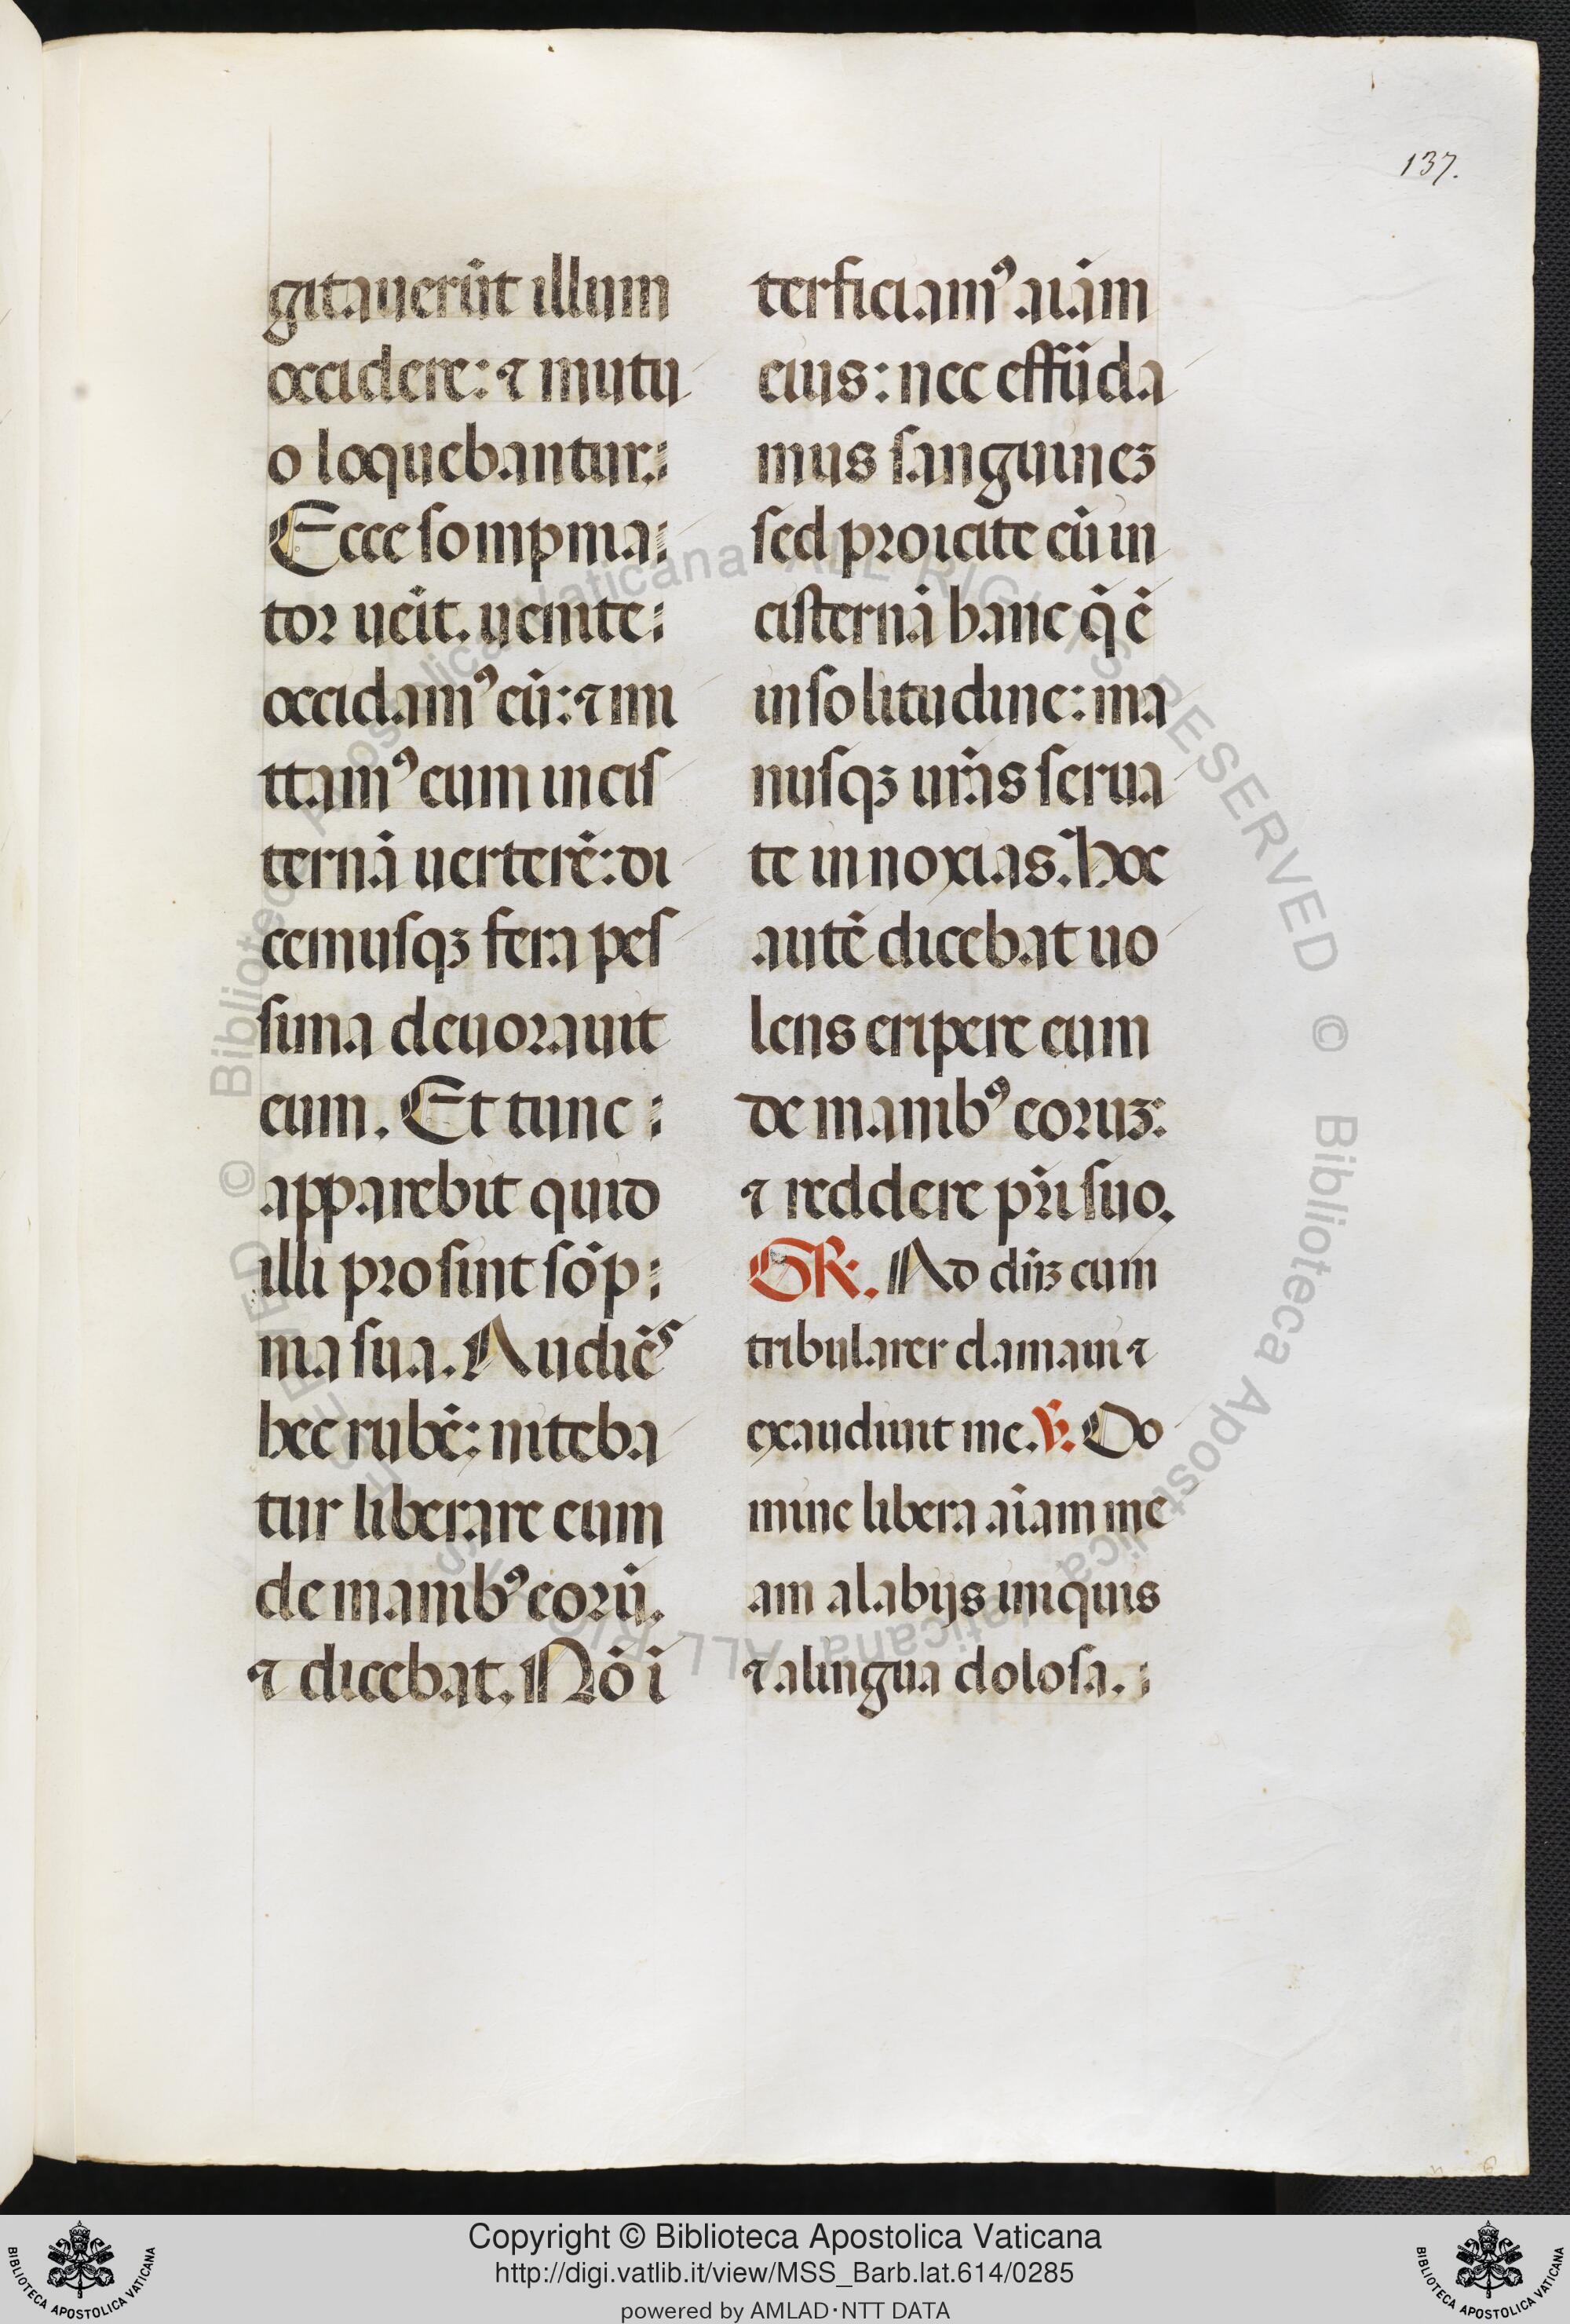 137.
gitauerūt illum
occidere: ⁊ mutu
o loquebantur:
Ecce sompnia:
tor ueīt. uenite:
occidam⁹ eū: ⁊ mi
ttam⁹ eum in cis
ternā uetterē: di
cemusqꝫ fera pes
sima deuorauit
eum. Et tunc:
apparebit quid
illi prosint sōp:
nia sua. Audiēˢ
hec rubē: niteba
tur liberare eum
de manib⁹ eorū.
⁊ dicebat. Nō ī
terficiam⁹ aīam
eius: nec effūda
mus sanguineꝫ
sed proicite eū in
cisternā hanc q̄ ē
in solitudine: ma
nusqꝫ ur̄as serua
te innoxias. Hoc
autē dicebat uo
lens eripere eum
de manib⁹ eoruꝫ:
⁊ reddere pr̄i suo.
GR. Ad dn̄ꝫ cum
tribularer clamaui ⁊
exaudiuit me. ℣. Do
mine libera aīam me
am a labijs iniquis
⁊ a lingua dolosa.:
© Biblioteca Apostolica Vaticana ALL RIGHTS RESERVED © Biblioteca Apostolica Vaticana ALL RIGHTS RESERVED
Copyright © Biblioteca Apostolica Vaticana
http://digi.vatlib.it/view/MSS_Barb.lat.614/0285
powered by AMLAD·NTT DATA
BIBLIOTECA APOSTOLICA VATICANA
BIBLIOTECA APOSTOLICA VATICANA